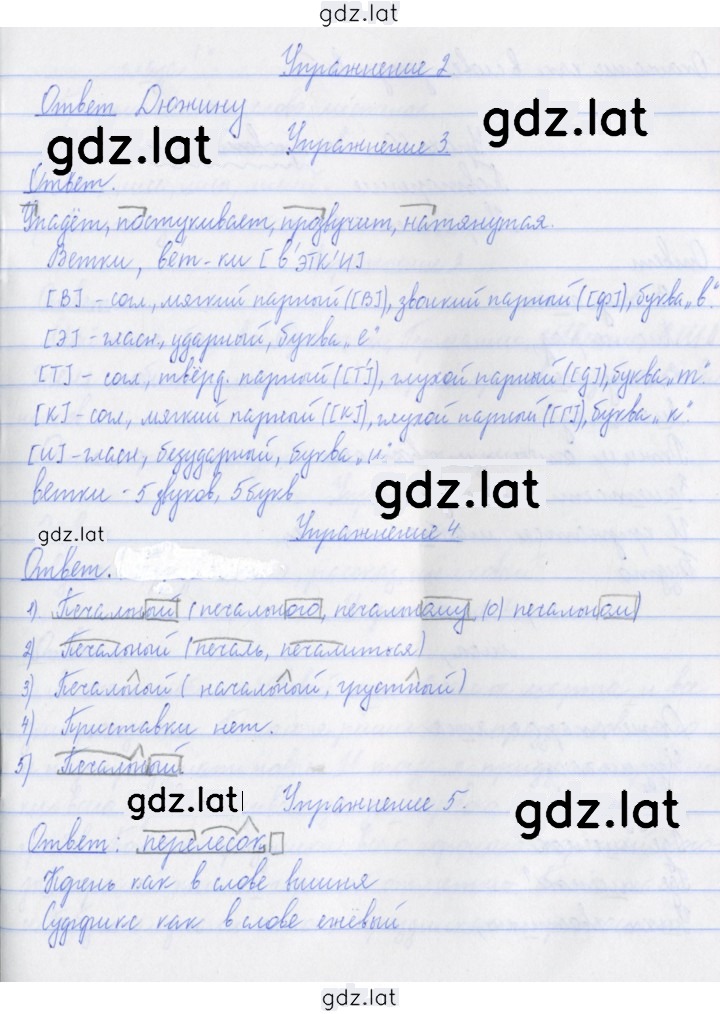 gdz.lat
Упражнение 2
Ответ Дюжину
gdz.lat
gdz.lat
Упражнение 3
Ответ.
Упадёт, постукивает, прозвучит, натянутая.
Ветки, вет-ки [в'этк'и]
[В] - согл, мягкий парный ([В]), звонкий парный ([ф]), буква „в".
[Э] - гласн, ударный, буква „е"
[Т] - согл, твёрд. парный ([Т']), глухой парный ([д]), буква „т".
[к] - согл, мягкий парный ([к]), глухой парный ([Г]), буква „к".
[и] - гласн, безударный, буква „и"
ветки - 5 звуков, 5 букв
gdz.lat
gdz.lat
Упражнение 4
Ответ.
1) Печальный (печального, печальному, (о) печальном)
2) Печальный (печаль, печалиться)
3) Печальный (начальный, грустный)
4) Приставки нет.
5) Печальный.
gdz.lat
Упражнение 5.
gdz.lat
Ответ: перелесок
Корень как в слове вишня
Суффикс как в слове ежевый
gdz.lat